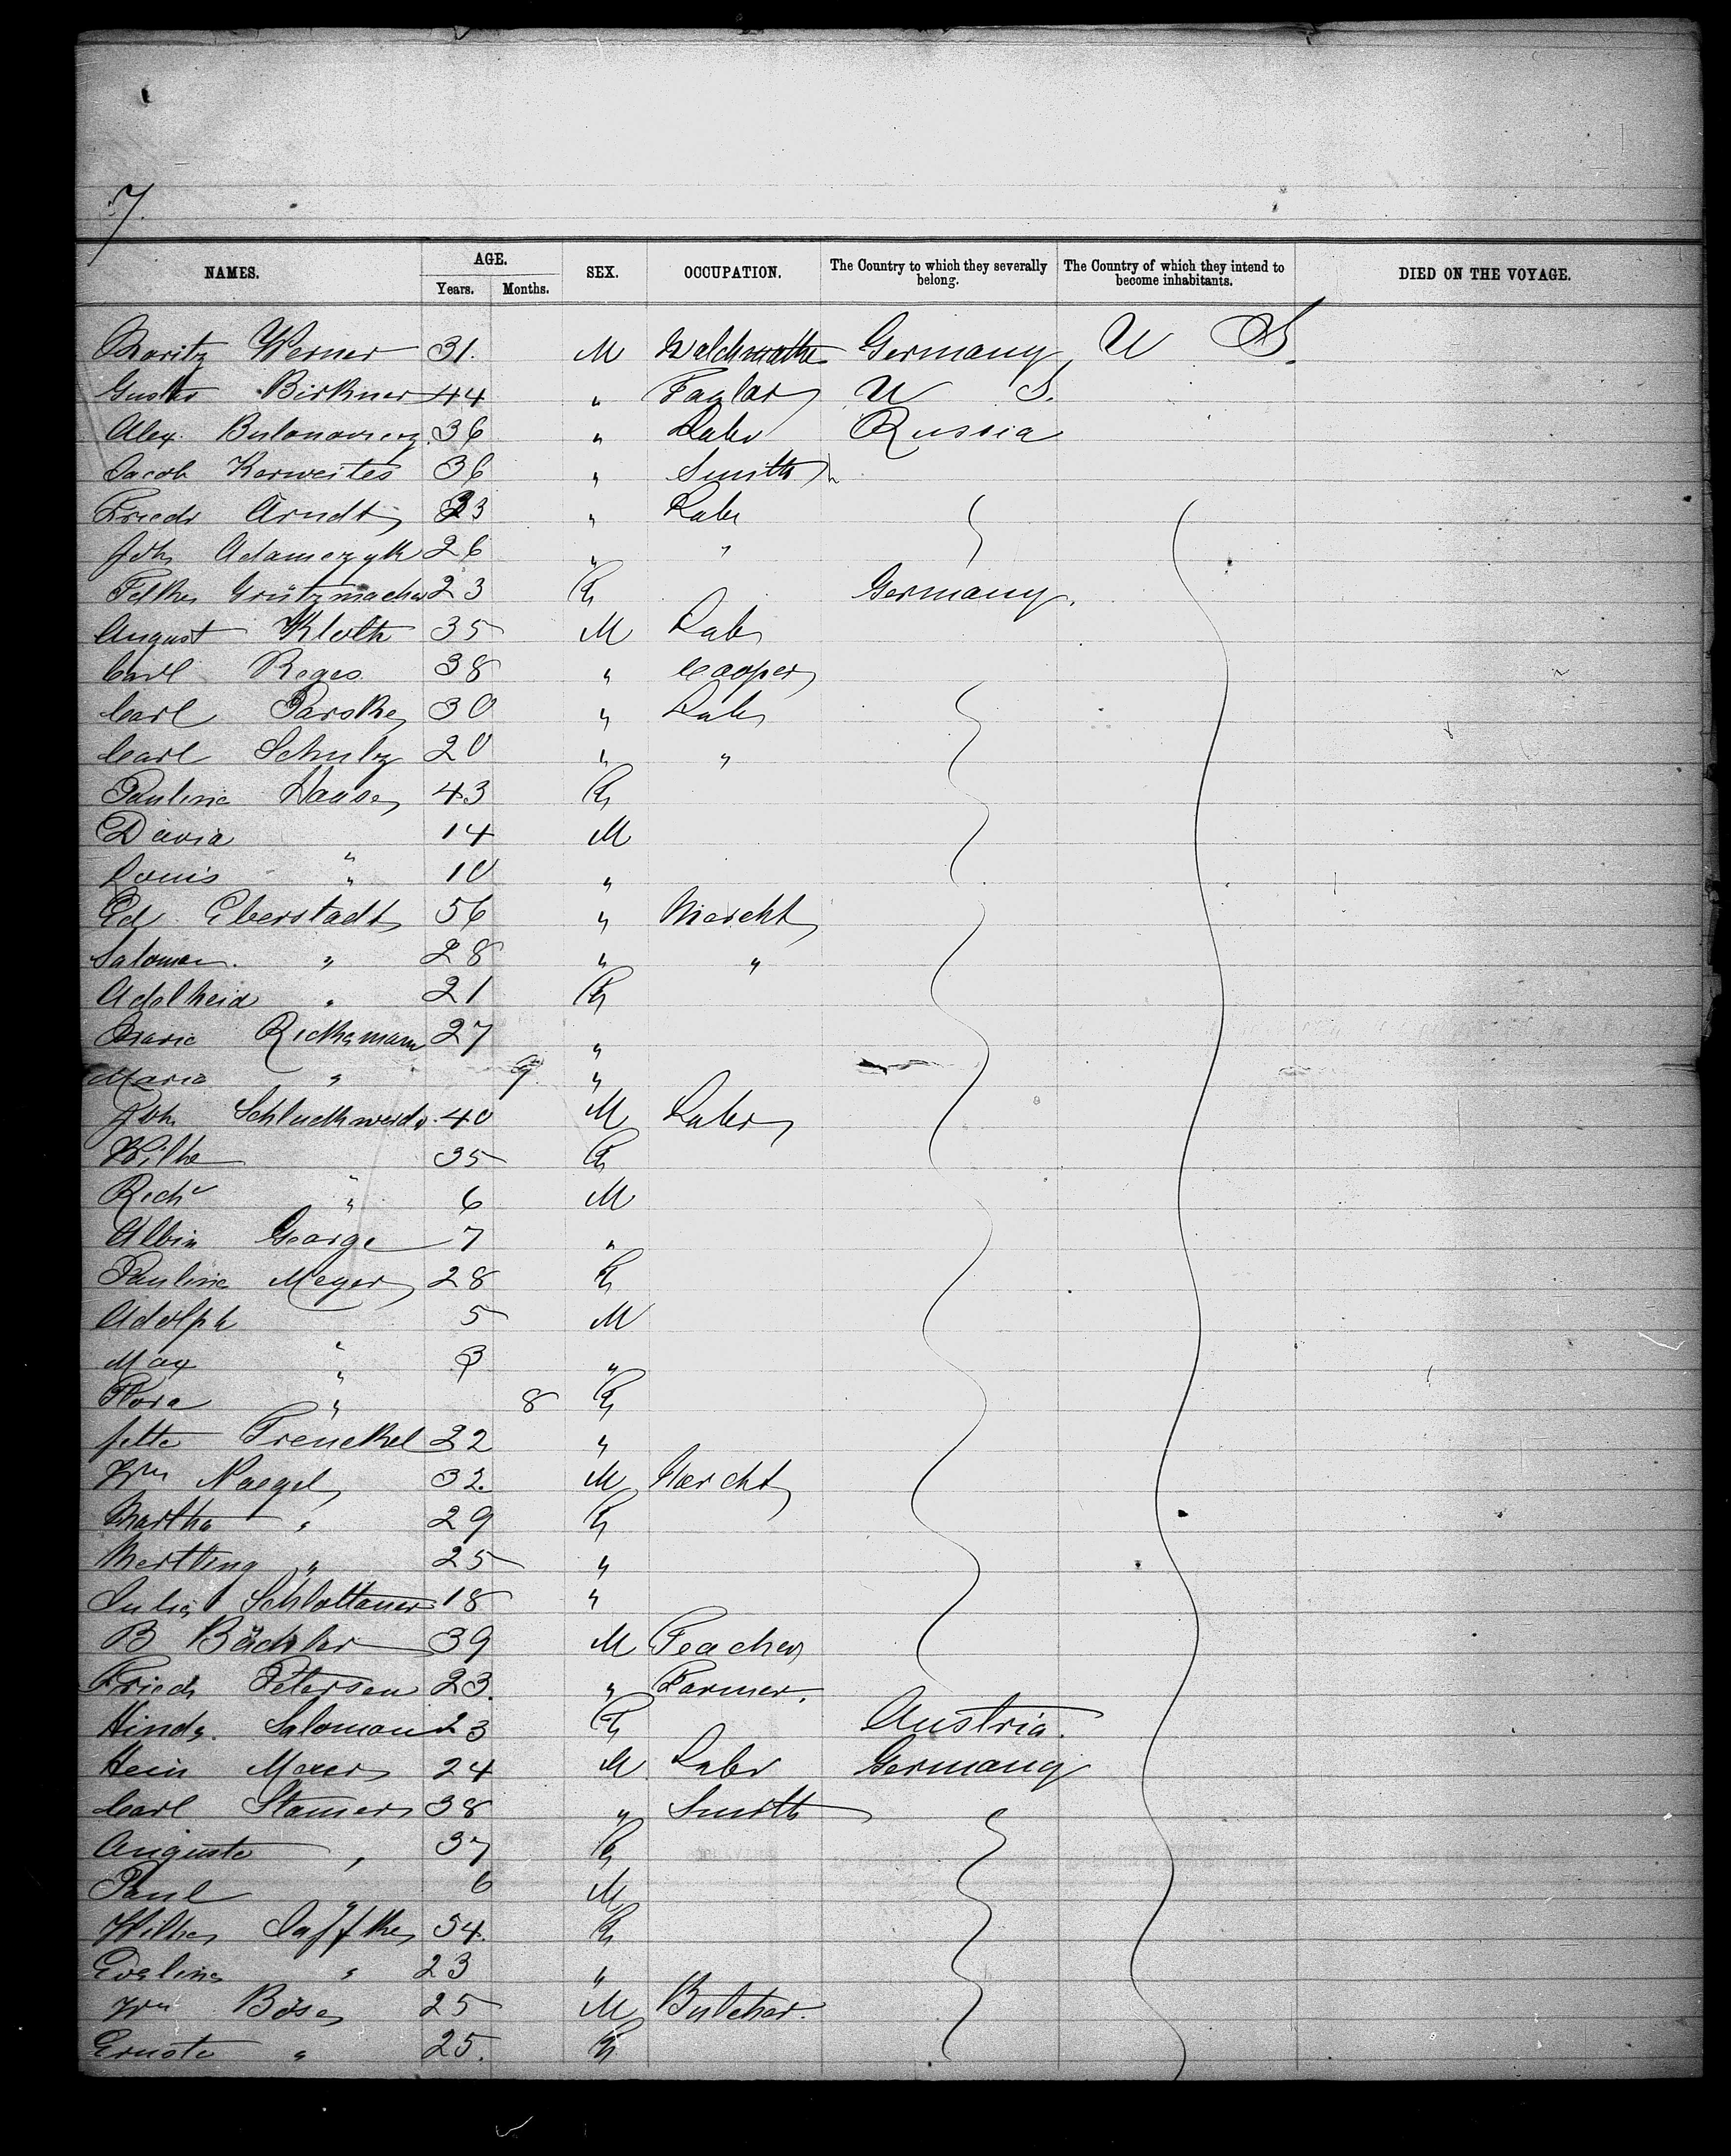 7.
NAMES. AGE. SEX. OCCUPATION. The Country to which they severally belong. The Country of which they intend to become inhabitants. DIED ON THE VOYAGE.
Years. Months.
Moritz Werner 31. M Germany U S.
Gustav Birkner 44 " Taylor U S.
Alex. 36 " Labr Russia
Jacob Karweites 36 " Smith
Friedr Arndt 23 " Labr
Joh Adamczyk 26 " "
Grützmacher 23 F Germany.
August Kloth 35 M Labr
Carl Roges 38 " Cooper
Carl Parske 30 " Labr
Carl Schulz 20 " "
Pauline Haase 43 F
David " 14 M
Louis " 10 "
Ed. Eberstadt 56 " Mercht
Salomon. " 28 " "
Adelheid " 21 F
Marie 27 "
Maria " 9 "
Joh 40 M Labr
Wilhe " 35 F
Richd " 6 M
Albin George 7 "
Pauline Meyer 28 F
Adolph " 5 M
Max " 3 "
Flora " 8 F
Jette Frenckel 22 "
Wm Naegel 32. M Mercht
Martha " 29 F
" 25 "
Julia Schlottauer 18 "
B Bächler 39 M Teacher
Friedr Petersen 23. " Farmer.
Hinde. Salomon 23 F Austria.
Hein 24 M Labr Germany
Carl Stamer 38 " Smith
Auguste " 37 F
Paul " 6 M
Wilhe 54. F
Eveline " 23 "
Wm Böse 25 M Butcher.
Ernste " 25. F